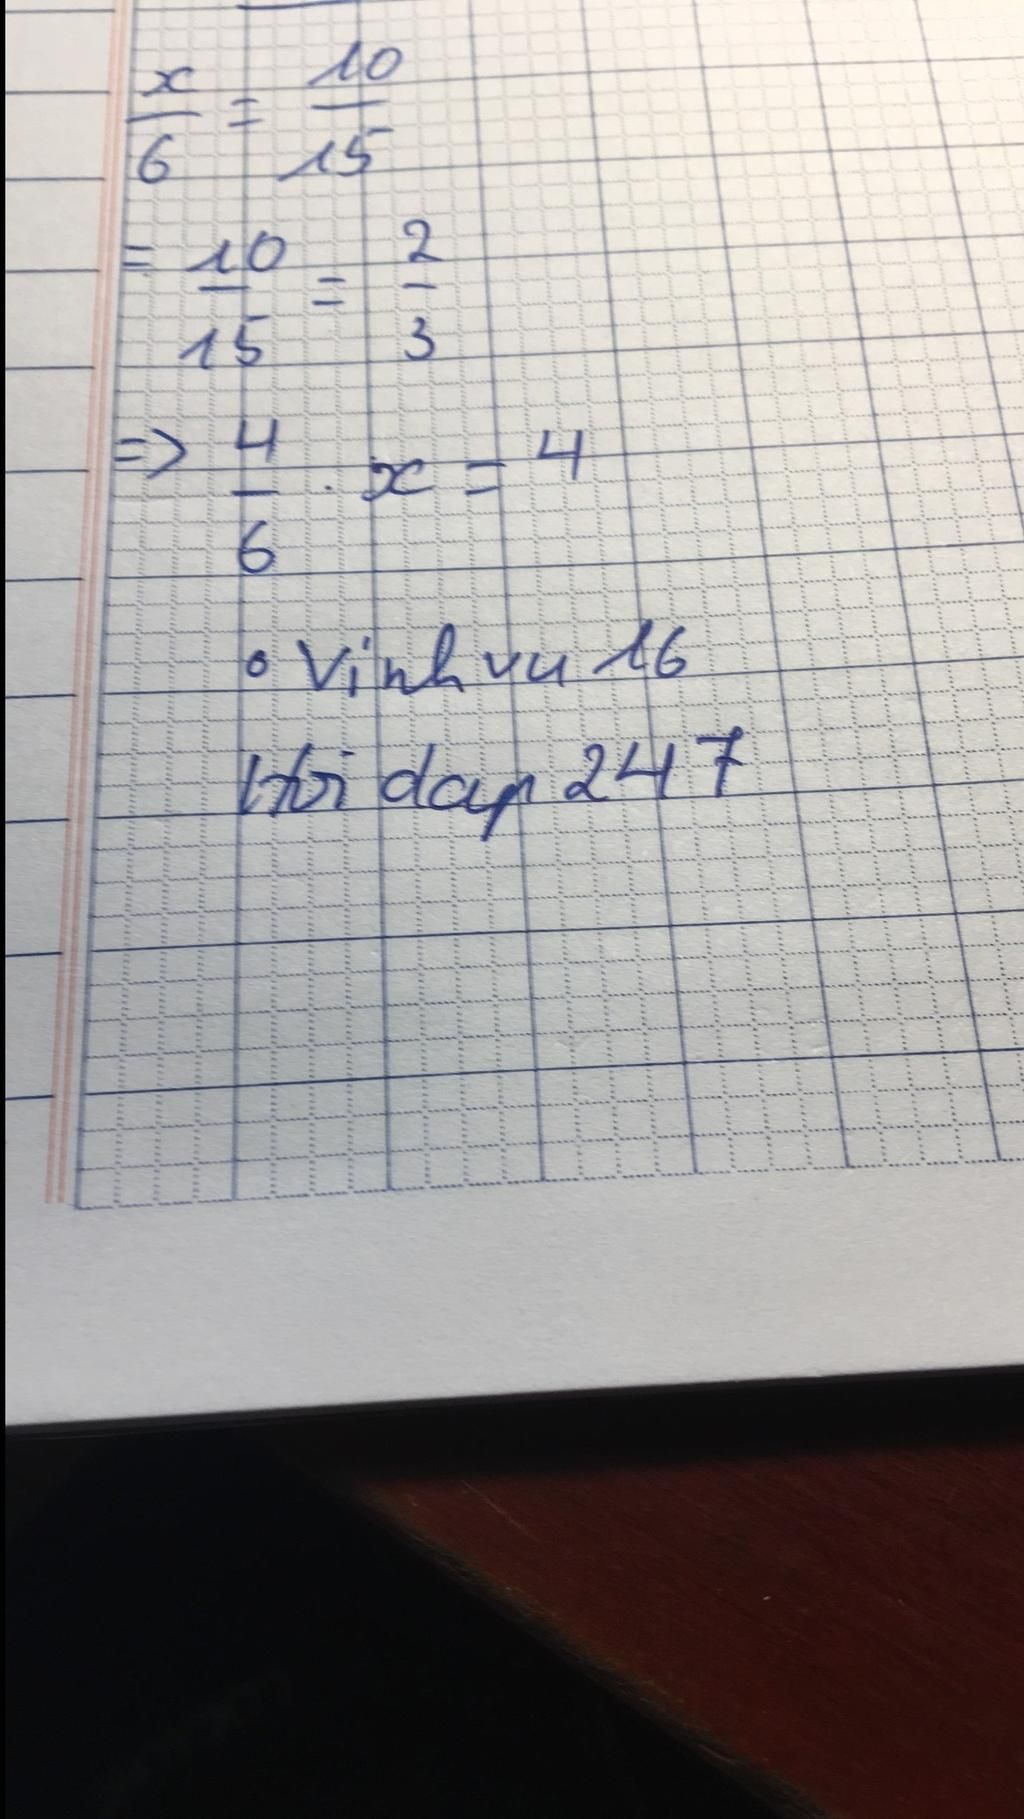 x/6 = 10/15
= 10/15 = 2/3
=> 4/6 . x = 4
• Vinh vu 16
Hoi dap 247